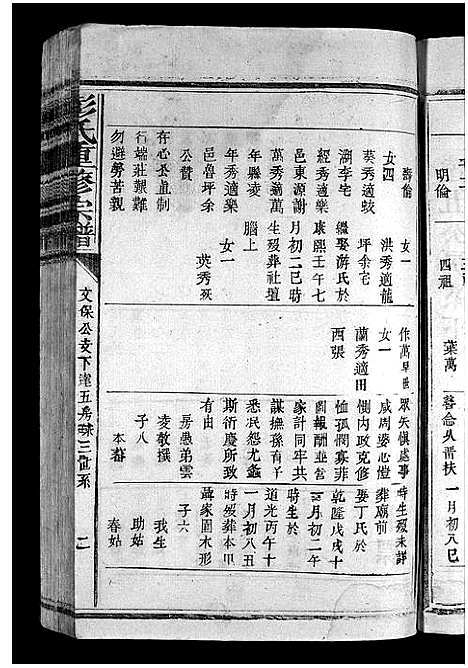 彭氏重修宗譜
文保公支下達五房球三世系
二
壽倫
女四
葵秀適蛟
湖李宅
經秀適樂
邑東源謝
萬秀適萬
年縣凌
年秀適樂
邑魯坪余
公贊
存心正直制
行端莊艱難
勿避勞苦親
女一
洪秀適龍
坪余宅
繼娶游氏於
康熙壬午七
月初二巳時
生歿葬社壇
腦上
女一
英秀歿
作萬早世
女一
蘭秀適田
西張
眾矢愼處事
咸周姿心愷
側內政克修
恤孤憫寡菲
圖報酬並營
家計同牢共
謀撫孫育子
悉泯怨尤螽
斯衍慶所致
有由
房愚弟雲
凌敬撰
子八
本蕃
時生歿未詳
葬廟前
娶丁氏於
乾隆戊戌十
二月初二午
時生於
道光丙午十
一月初八五
時歿葬本甲
聶家園木形
子六
我生
助姑
春姑
明倫
四祖
葉萬
一月初八巳